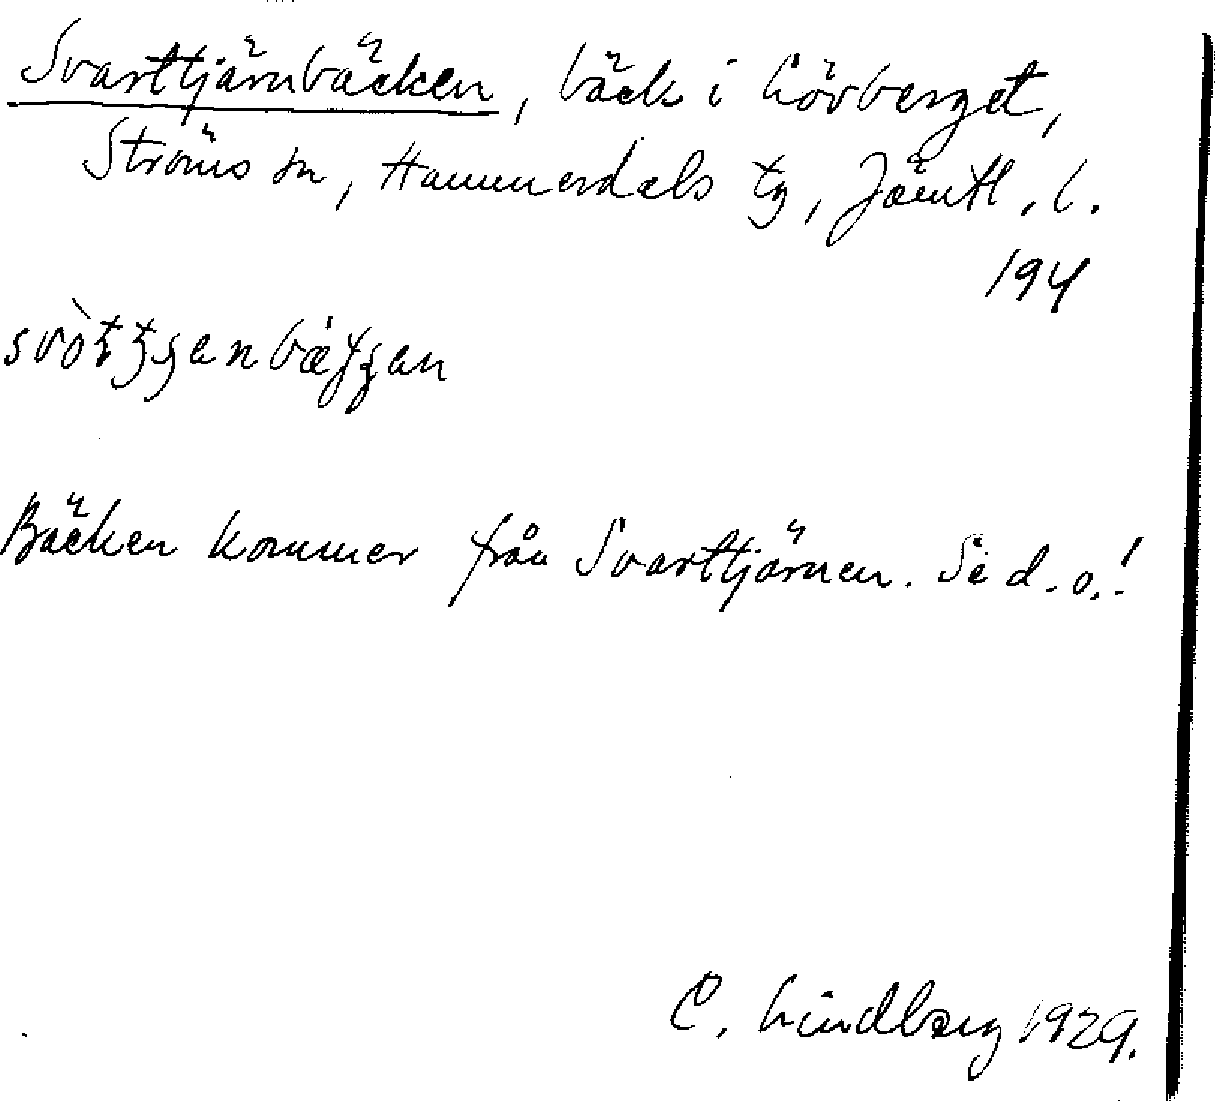 Svarttjärnbäcken, bäck i Lövberget,
Ströms sn, Hammerdals tg, Jämtl. l.
194
Bäcken kommer från Svarttjärnen. Se d. o.!
C. Lindberg 1929.